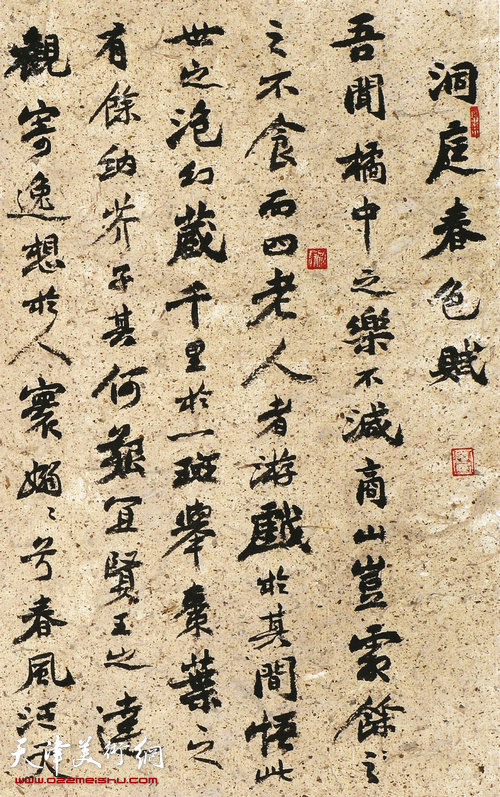 洞庭春色賦
吾聞橘中之樂不減商山豈霜餘之
之不食而四老人者游戲於其間悟此
世之泡幻藏千里於一斑舉棗葉之
有餘納芥子其何艱宜賢王之達
觀寄逸想於人寰嫋〻兮春風泛天
天津美術網
www.022meishu.com